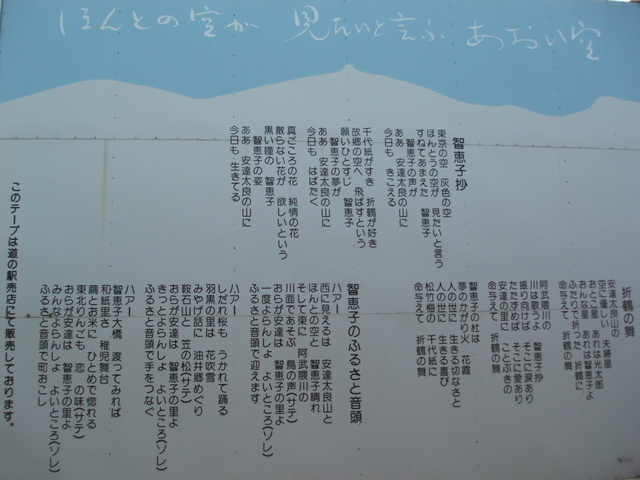 ほんとの空が 見たいと言ふ あおい空
智恵子抄
東京の空 灰色の空
ほんとうの空が 見たいと言う
すねてあまえた 智恵子
智恵子の声が
ああ 安達太良の山に
今日も きこえる
千代紙がすき 折鶴が好き
故郷の空へ 飛ばすという
願いひとすじ 智恵子
智恵子の夢が
ああ 安達太良の山に
今日も はばたく
真ごころの花 純情の花
散らない花が 欲しいという
黒い瞳の 智恵子
智恵子の姿
ああ 安達太良の山に
今日も 生きてる
折鶴の舞
安達太良の山の
空に棲むらしい 夫婦星
おとこ星 あれは光太郎
おんな星 あれは智恵子よ
ふたりで折った 折鶴に
命与えて 折鶴の舞
阿武隈川の
川は歌うよ 智恵子抄
振り向けば そこに涙あり
たたずめば そこに愛あり
安達の里に ことぶきの
命与えて 折鶴の舞
智恵子の杜は
夢のかがり火 花霞
人の世に 生きる切なさと
人の世に 生きる喜び
松竹梅の 千代紙に
命与えて 折鶴の舞
智恵子のふるさと音頭
ハアー
西に見えるは 安達太良山と
ほんとの空と 智恵子晴れ
そして東に 阿武隈川の
川面であそぶ 鳥の声(サテ)
おらが安達は 智恵子の里よ
一度よらんしょ よいところ(ソレ)
ふるさと音頭で迎えます
ハアー
しだれ桜も うかれて踊る
羽黒の里は 花吹雪
みやげ話に 油井郷めぐり
鞍石山と 笠の松(サテ)
おらが安達は 智恵子の里よ
きっとよらんしょ よいところ(ソレ)
ふるさと音頭で手をつなぐ
ハアー
智恵子大橋 渡ってみれば
和紙里さ 稚児舞台
繭とお米に ひとめで惚れる
東北りんごも 恋の味(サテ)
おらが安達は 智恵子の里よ
みんなよらんしょ よいところ(ソレ)
ふるさと音頭で町おこし
このテープは道の駅売店にて販売しております。